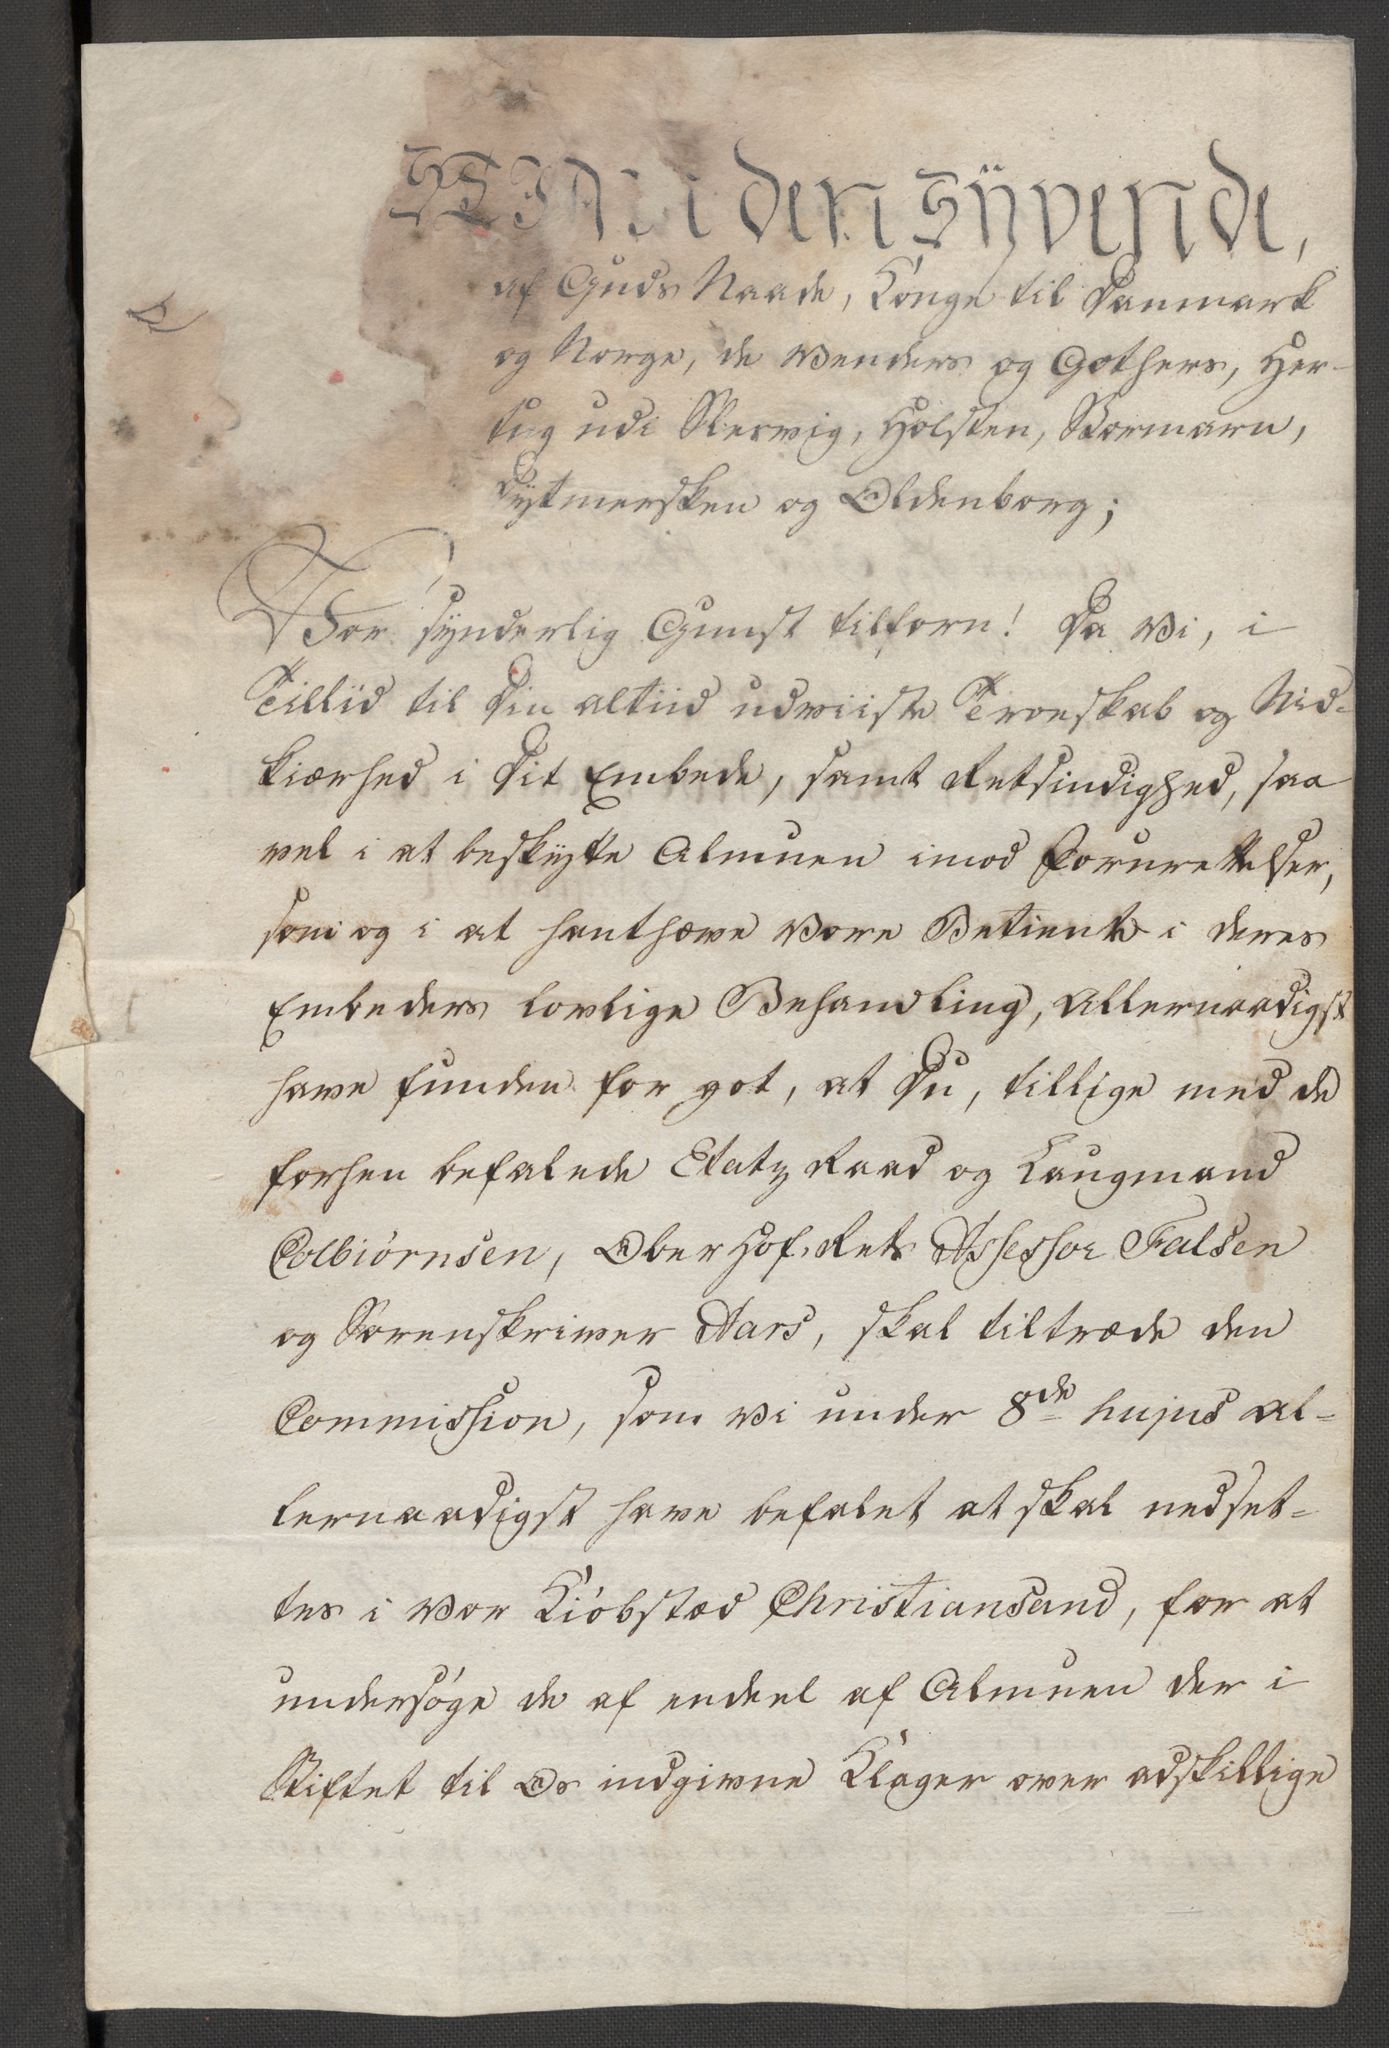 den Syvende,
af Guds Naade, Konge til Danmark
og Norge, de Venders og Gothers, Her-
tug udi Slesvig, Holsten, Stormarn,
Dytmersken og Oldenborg;
Vor synderlig Gunst tilforn! Da Vi, i
Tilliid til Din altiid udviiste Troeskab og Nid-
kiærhed i Dit Embede, samt Retsindighed, saa
vel i at beskytte Almuen imod Forurettelser,
som og i at hanthæve Vore Betiente i deres
Embeders lovlige Behandling, Allernaadigst
have funden for got, at Du, tillige med de
forhen befalede Etatz Raad og Laugmand
Colbiørnsen, Ober Hof-Rets Assessor Falsen
og Sorenskriver Aars, skal tiltræde den
Commission, som Vi under 8de hujus al-
lernaadigst have befalet at skal nedset-
tes i Vor Kiøbstæd Christiansand, for at
undersøge de af endeel af Almuen der i
Stiftet til Os indgivne Klager over adskillige